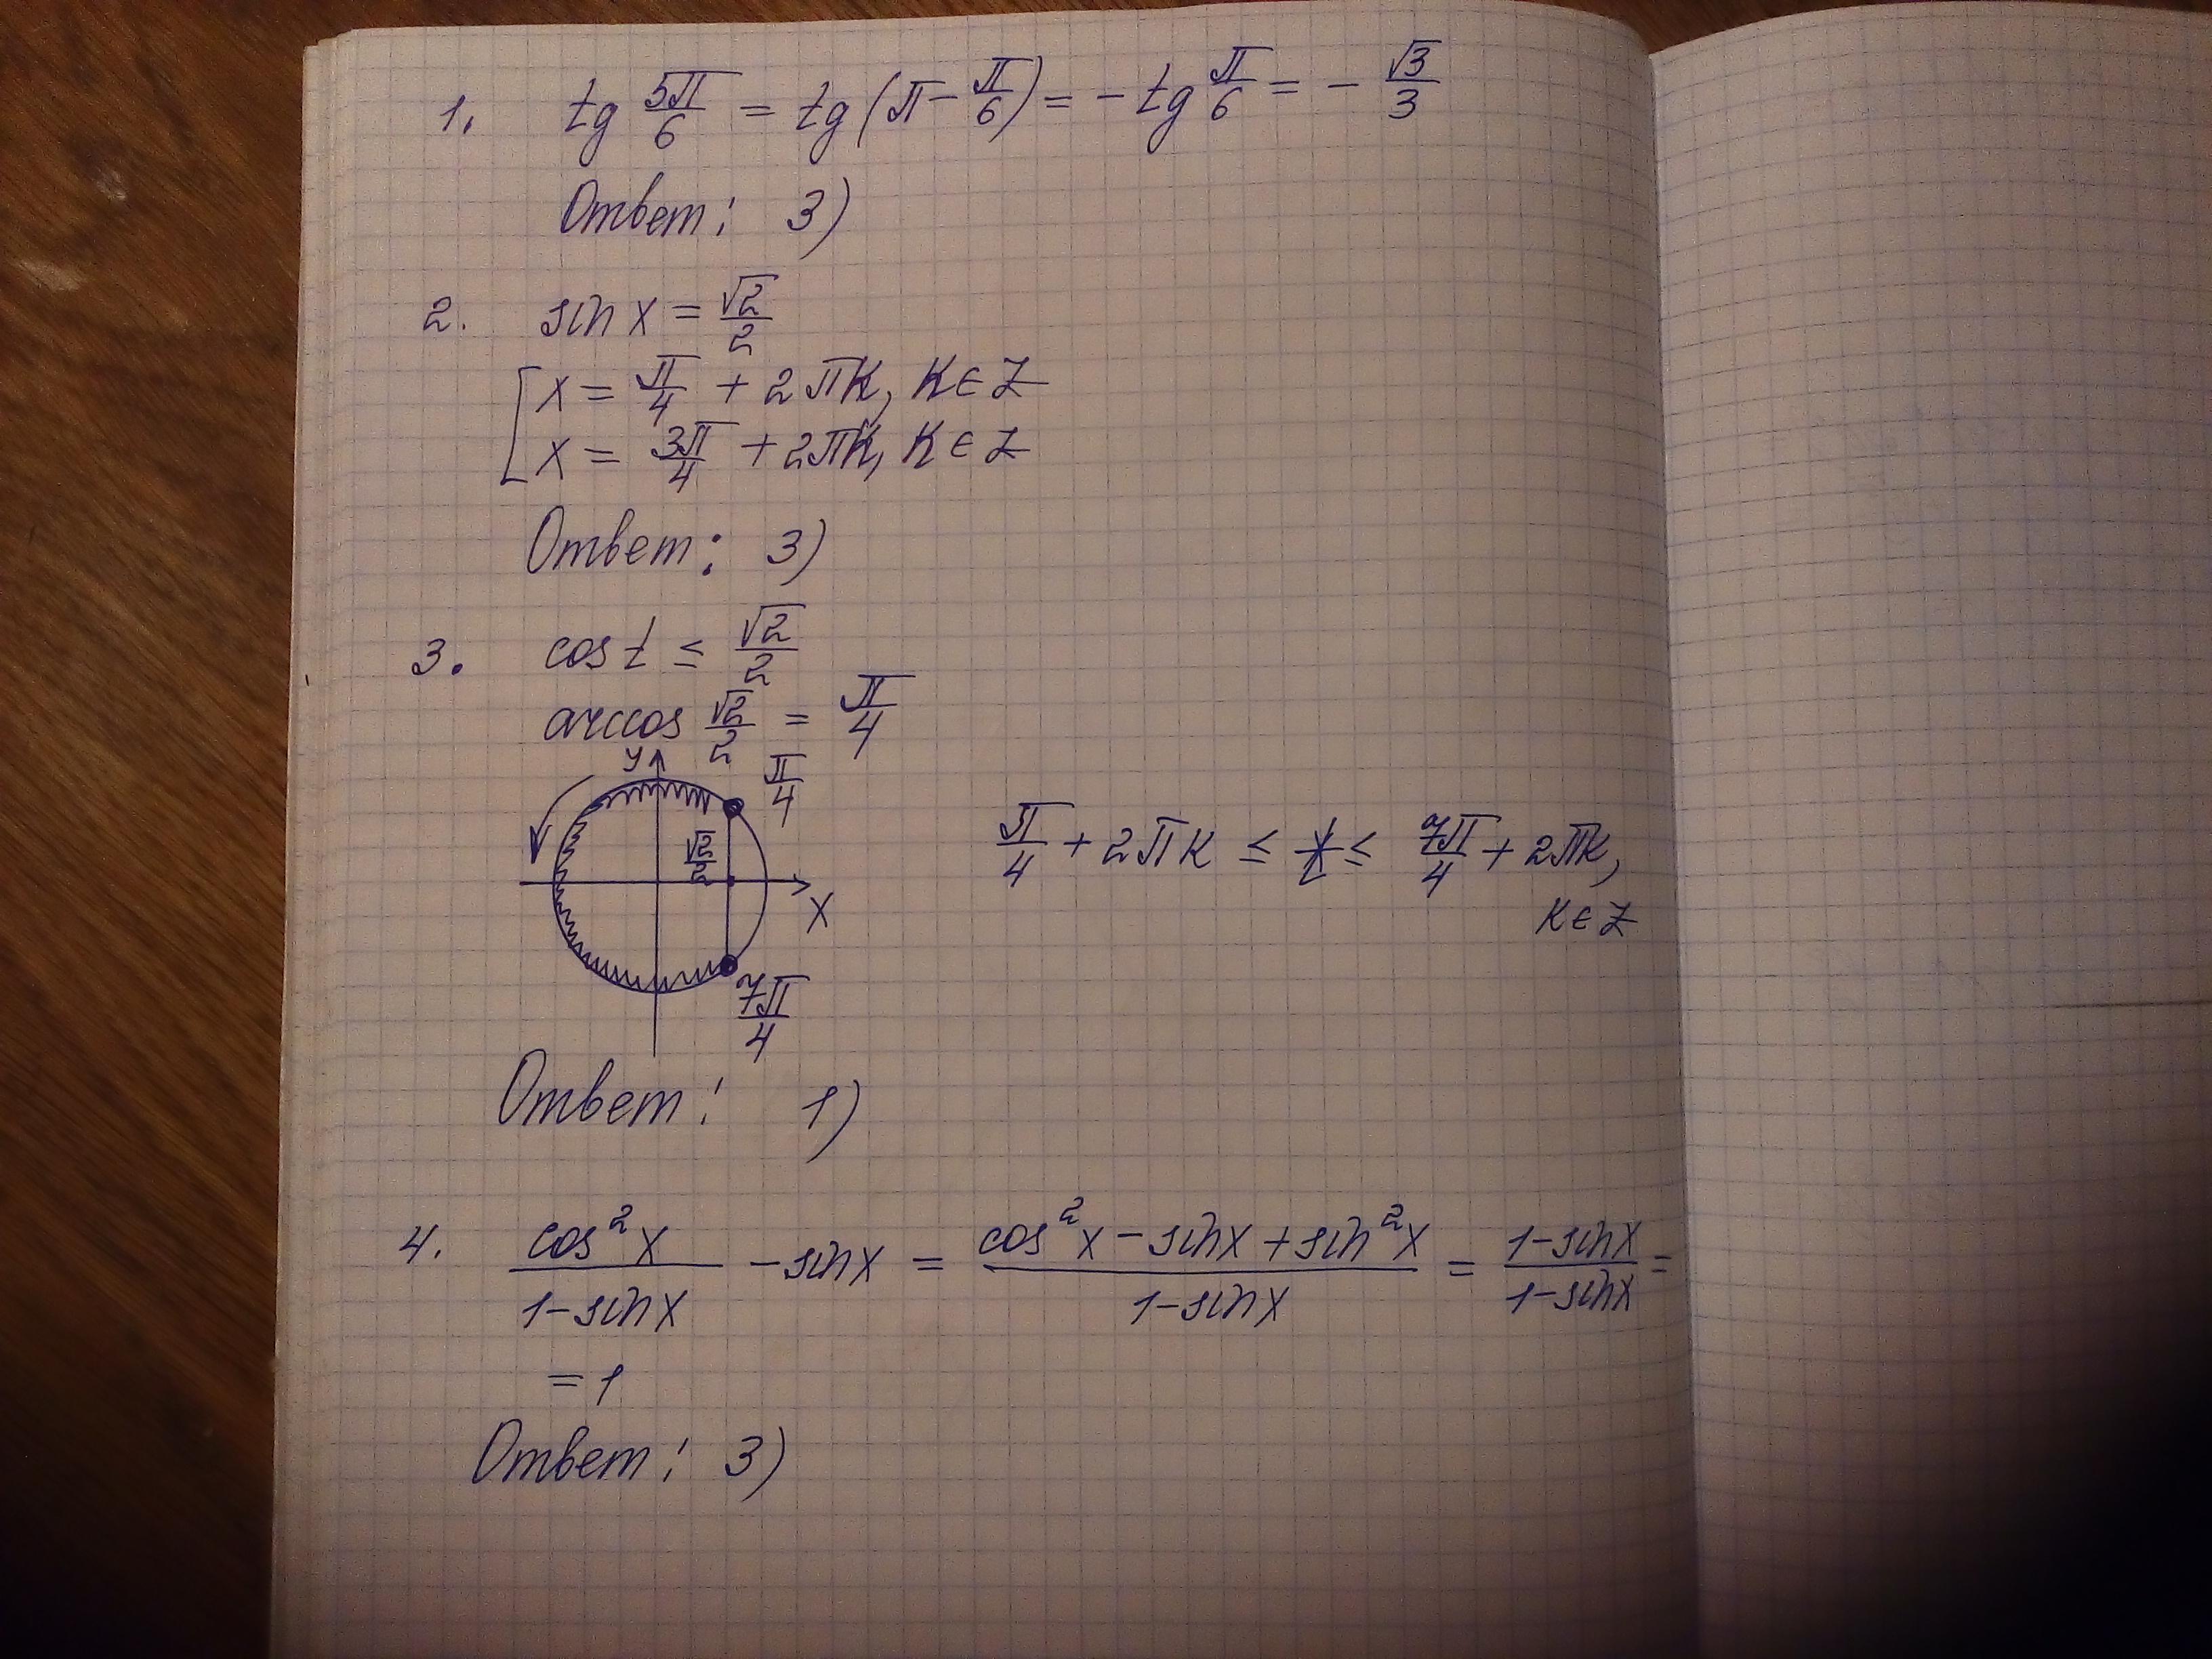 1. tg 5π/6 = tg(π - π/6) = - tg π/6 = - √3/3
Ответ: 3)
2. sin x = √2/2
[ x = π/4 + 2πk, k ∈ Z
x = 3π/4 + 2πk, k ∈ Z
Ответ: 3)
3. cos t ≤ √2/2
arccos √2/2 = π/4
y
π/4
√2/2
x
7π/4
π/4 + 2πk ≤ t ≤ 7π/4 + 2πk,
k ∈ Z
Ответ: 1)
4. cos²x/(1-sinx) - sinx = (cos²x - sinx + sin²x)/(1-sinx) = (1-sinx)/(1-sinx) =
= 1
Ответ: 3)